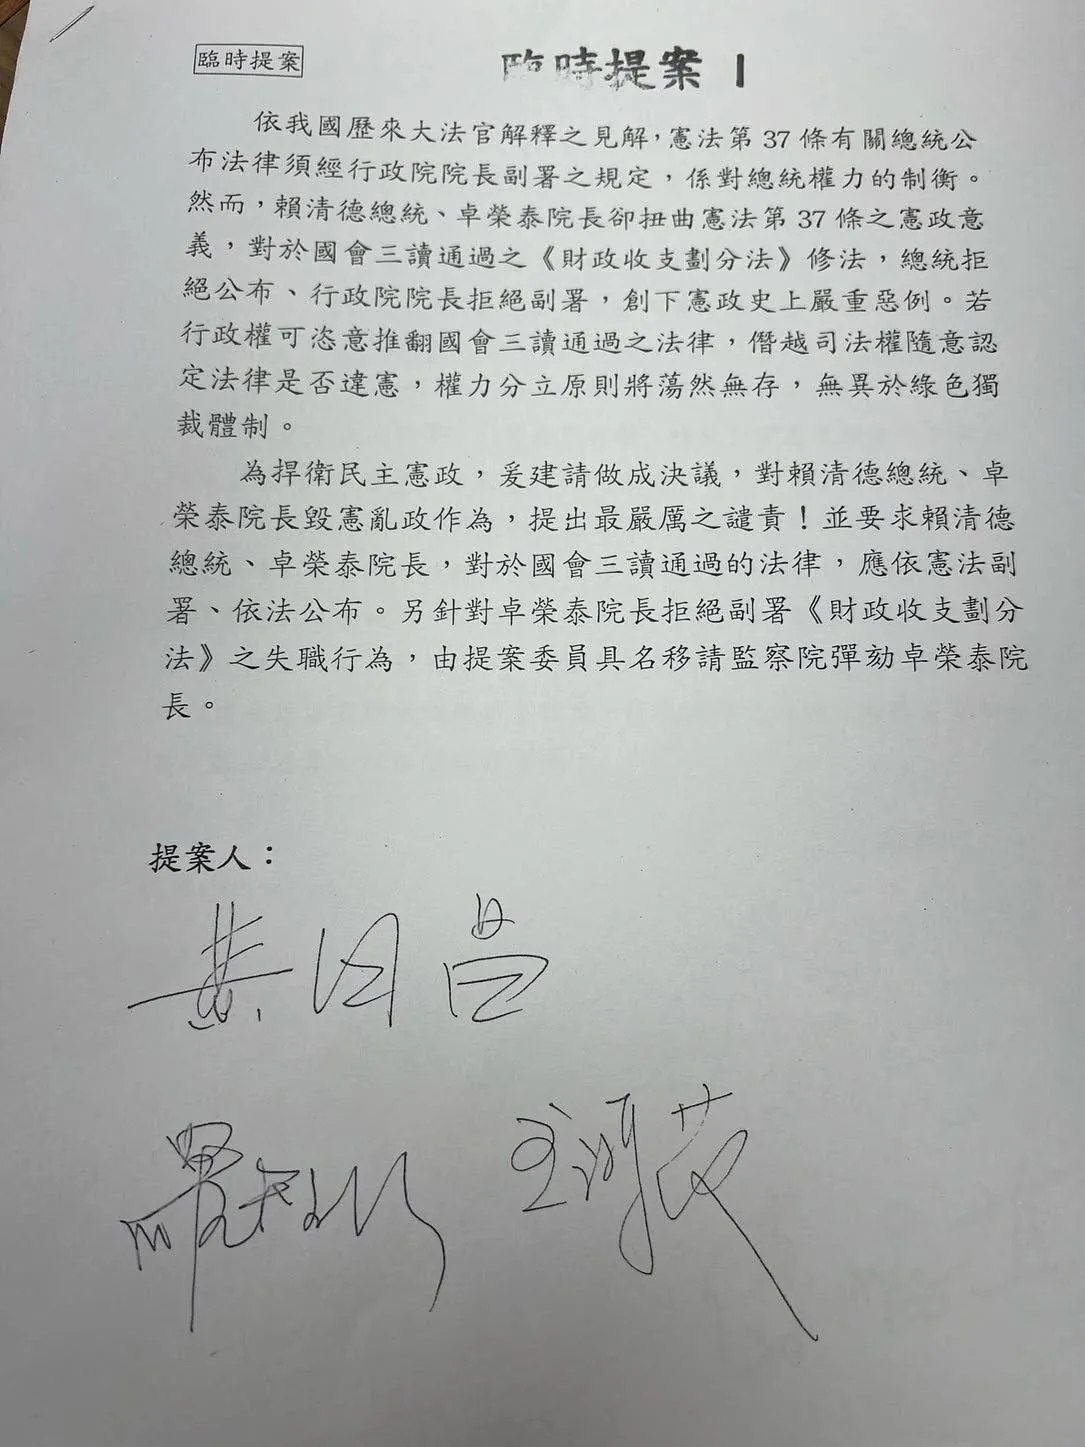 臨時提案
臨時提案 1
依我國歷來大法官解釋之見解，憲法第 37 條有關總統公
布法律須經行政院院長副署之規定，係對總統權力的制衡。
然而，賴清德總統、卓榮泰院長卻扭曲憲法第 37 條之憲政意
義，對於國會三讀通過之《財政收支劃分法》修法，總統拒
絕公布、行政院院長拒絕副署，創下憲政史上嚴重惡例。若
行政權可恣意推翻國會三讀通過之法律，僭越司法權隨意認
定法律是否違憲，權力分立原則將蕩然無存，無異於綠色獨
裁體制。
為捍衛民主憲政，爰建請做成決議，對賴清德總統、卓
榮泰院長毀憲亂政作為，提出最嚴厲之譴責！並要求賴清德
總統、卓榮泰院長，對於國會三讀通過的法律，應依憲法副
署、依法公布。另針對卓榮泰院長拒絕副署《財政收支劃分
法》之失職行為，由提案委員具名移請監察院彈劾卓榮泰院
長。
提案人：
黃國昌